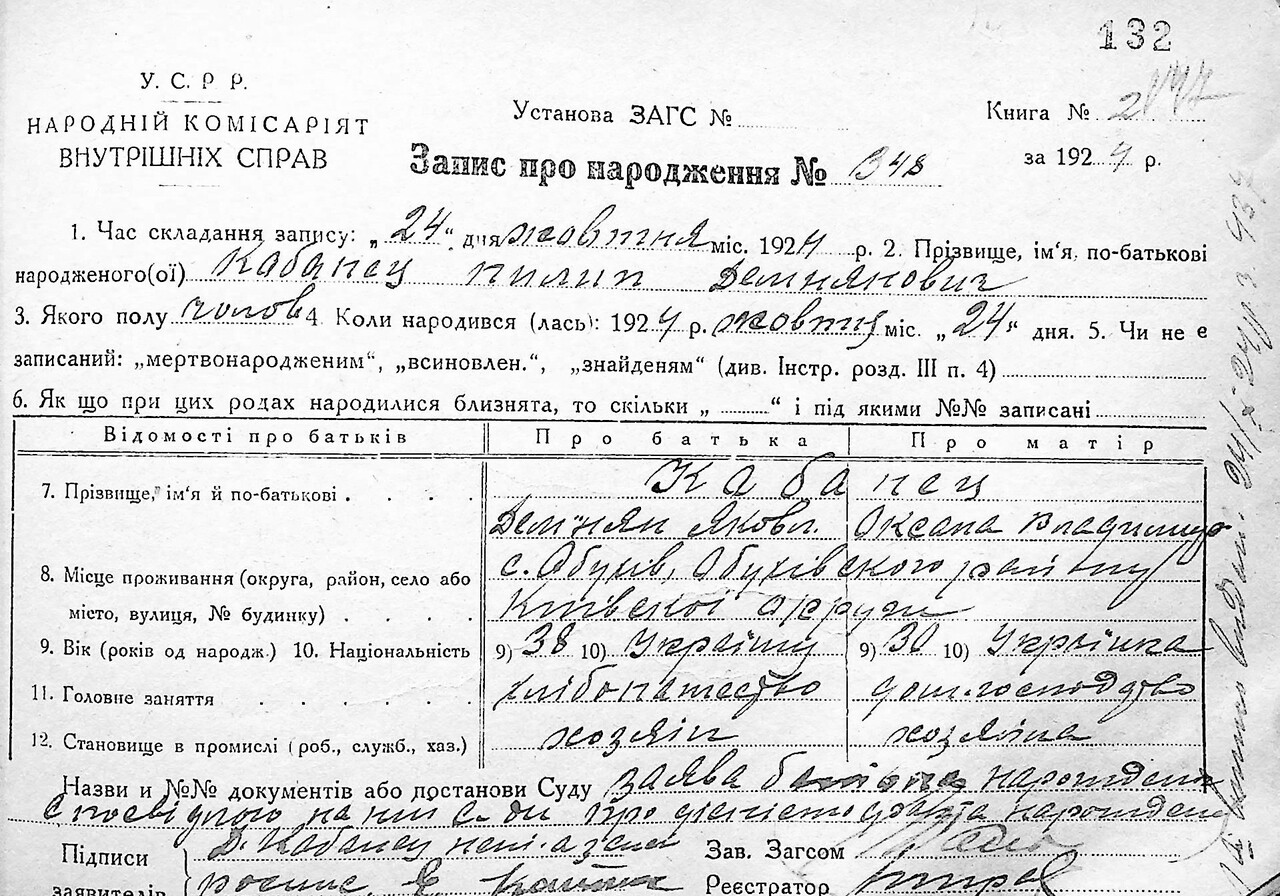 132
У. С. Р Р.
НАРОДНІЙ КОМІСАРІЯТ
ВНУТРІШНІХ СПРАВ
Установа ЗАГС №
Книга № 2
Запис про народження № 348
за 1924 р.
1. Час складання запису: „24“ дня жовтня міс. 1924 р. 2. Прізвище, ім‘я, по-батькові
народженого(ої) Кабанец Пилип Демнянович
3. Якого полу чолов 4. Коли народився (лась): 1924 р. жовтня міс. „24“ дня. 5. Чи не є
записаний: „мертвонародженим“, „всиновлен.“, „знайденям“ (див. Інстр. розд. III п. 4)
6. Як що при цих родах народилися близнята, то скільки „ “ і під якими №№ записані
Відомості про батьків Про батька Про матір
7. Прізвище, ім‘я й по-батькові . . . . Кабанец
Демнян Яковл. Оксана Владимир
8. Місце проживання (округа, район, село або с. Обухів, Обухівского району
місто, вулиця, № будинку) . . . . Київскої округи
9. Вік (років од народж.) 10. Національність 9) 38 10) Українц 9) 30 10) Українка
11. Головне заняття . . . . . . хлібопашество дом. господство
12. Становище в промислі (роб., служб., хаз.) хозяін хозяіна
Назви и №№ документів або постанови Суду заява
про факта
Підписи Д. Кабанец Зав. Загсом
заявителів Реєстратор